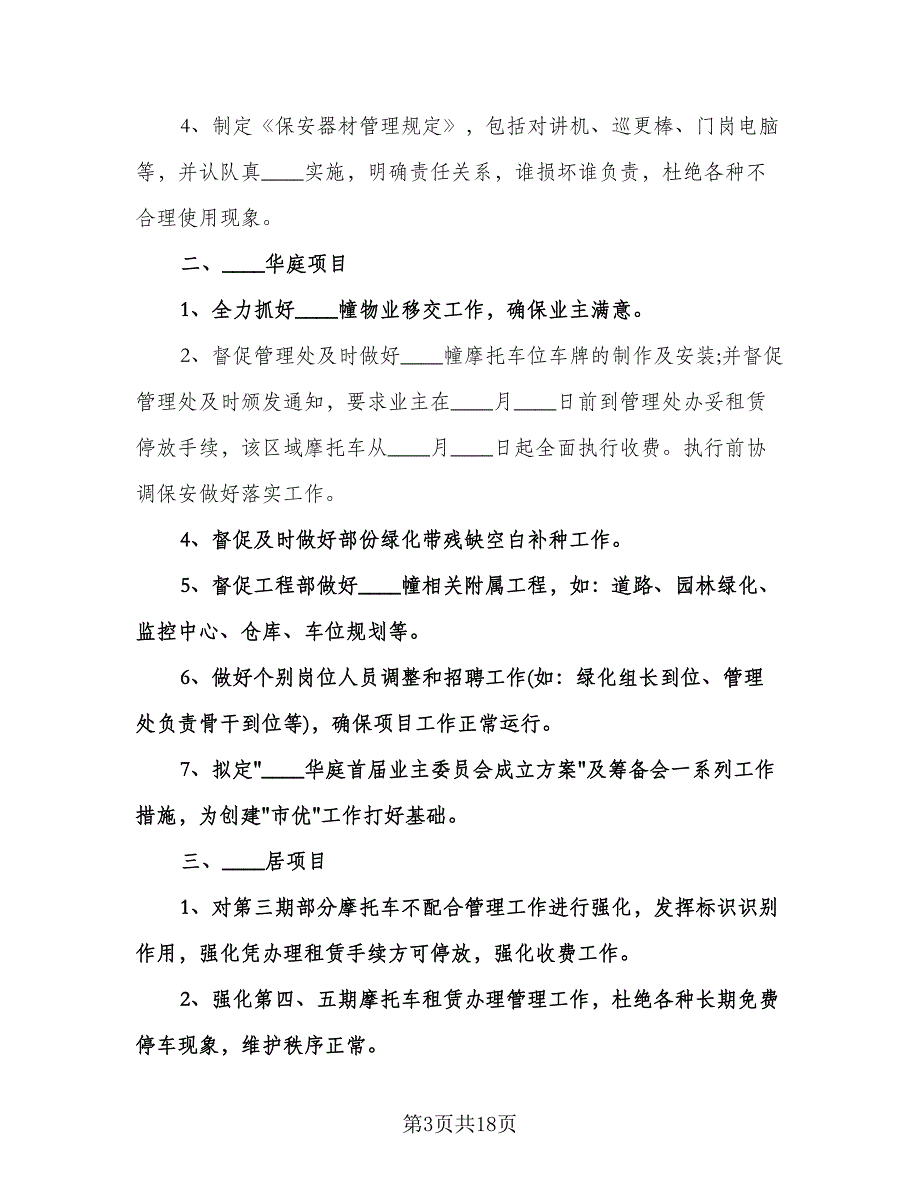 4、制定《保安器材管理规定》，包括对讲机、巡更棒、门岗电脑
等，并认队真____实施，明确责任关系，谁损坏谁负责，杜绝各种不
合理使用现象。
二、____华庭项目
1、全力抓好____幢物业移交工作，确保业主满意。
2、督促管理处及时做好____幢摩托车位车牌的制作及安装;并督促
管理处及时颁发通知，要求业主在____月____日前到管理处办妥租赁
停放手续，该区域摩托车从____月____日起全面执行收费。执行前协
调保安做好落实工作。
4、督促及时做好部份绿化带残缺空白补种工作。
5、督促工程部做好____幢相关附属工程，如：道路、园林绿化、
监控中心、仓库、车位规划等。
6、做好个别岗位人员调整和招聘工作(如：绿化组长到位、管理
处负责骨干到位等)，确保项目工作正常运行。
7、拟定"____华庭首届业主委员会成立方案"及筹备会一系列工作
措施，为创建"市优"工作打好基础。
三、____居项目
1、对第三期部分摩托车不配合管理工作进行强化，发挥标识识别
作用，强化凭办理租赁手续方可停放，强化收费工作。
2、强化第四、五期摩托车租赁办理管理工作，杜绝各种长期免费
停车现象，维护秩序正常。
第3页共18页